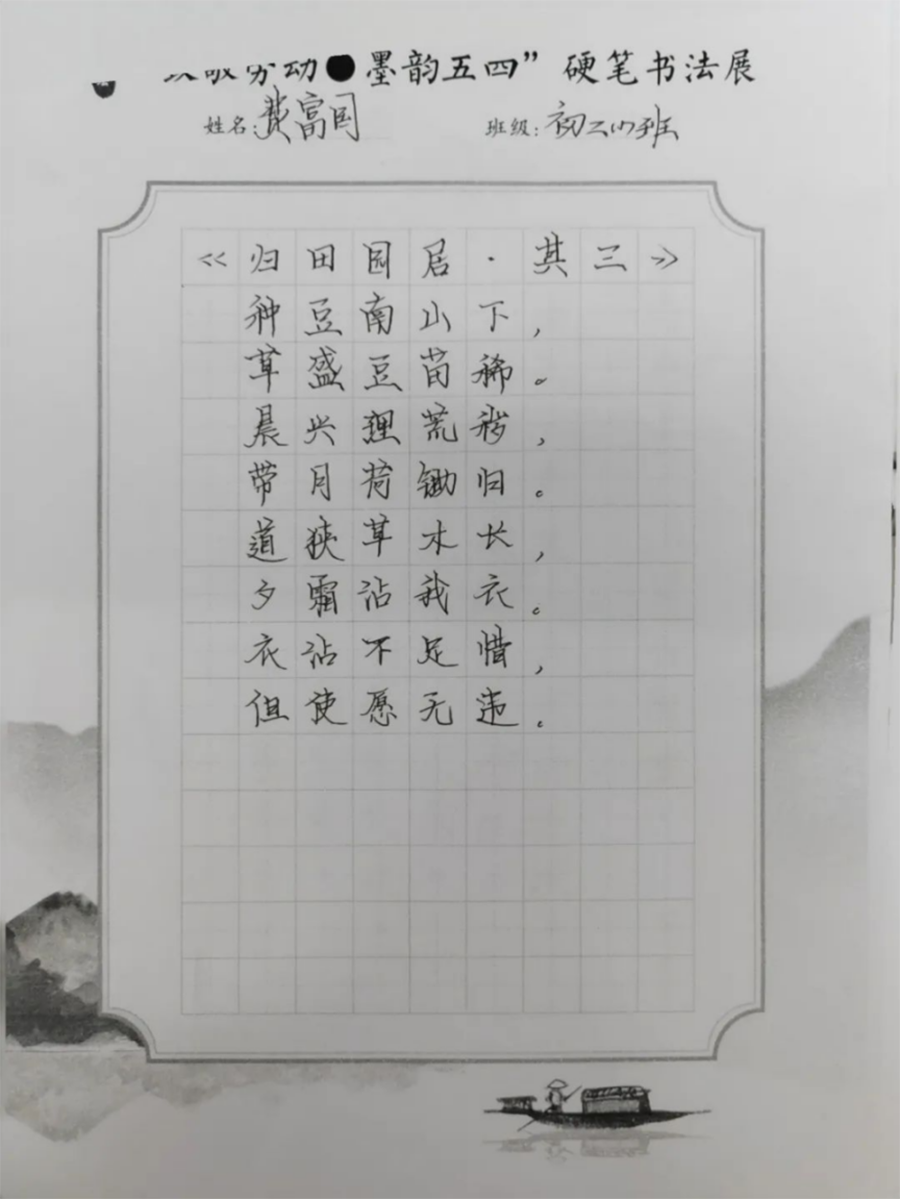 致敬劳动●墨韵五四”硬笔书法展
姓名：富国 班级：初二班
《归田园居·其三》
种豆南山下，
草盛豆苗稀。
晨兴理荒秽，
带月荷锄归。
道狭草木长，
夕露沾我衣。
衣沾不足惜，
但使愿无违。